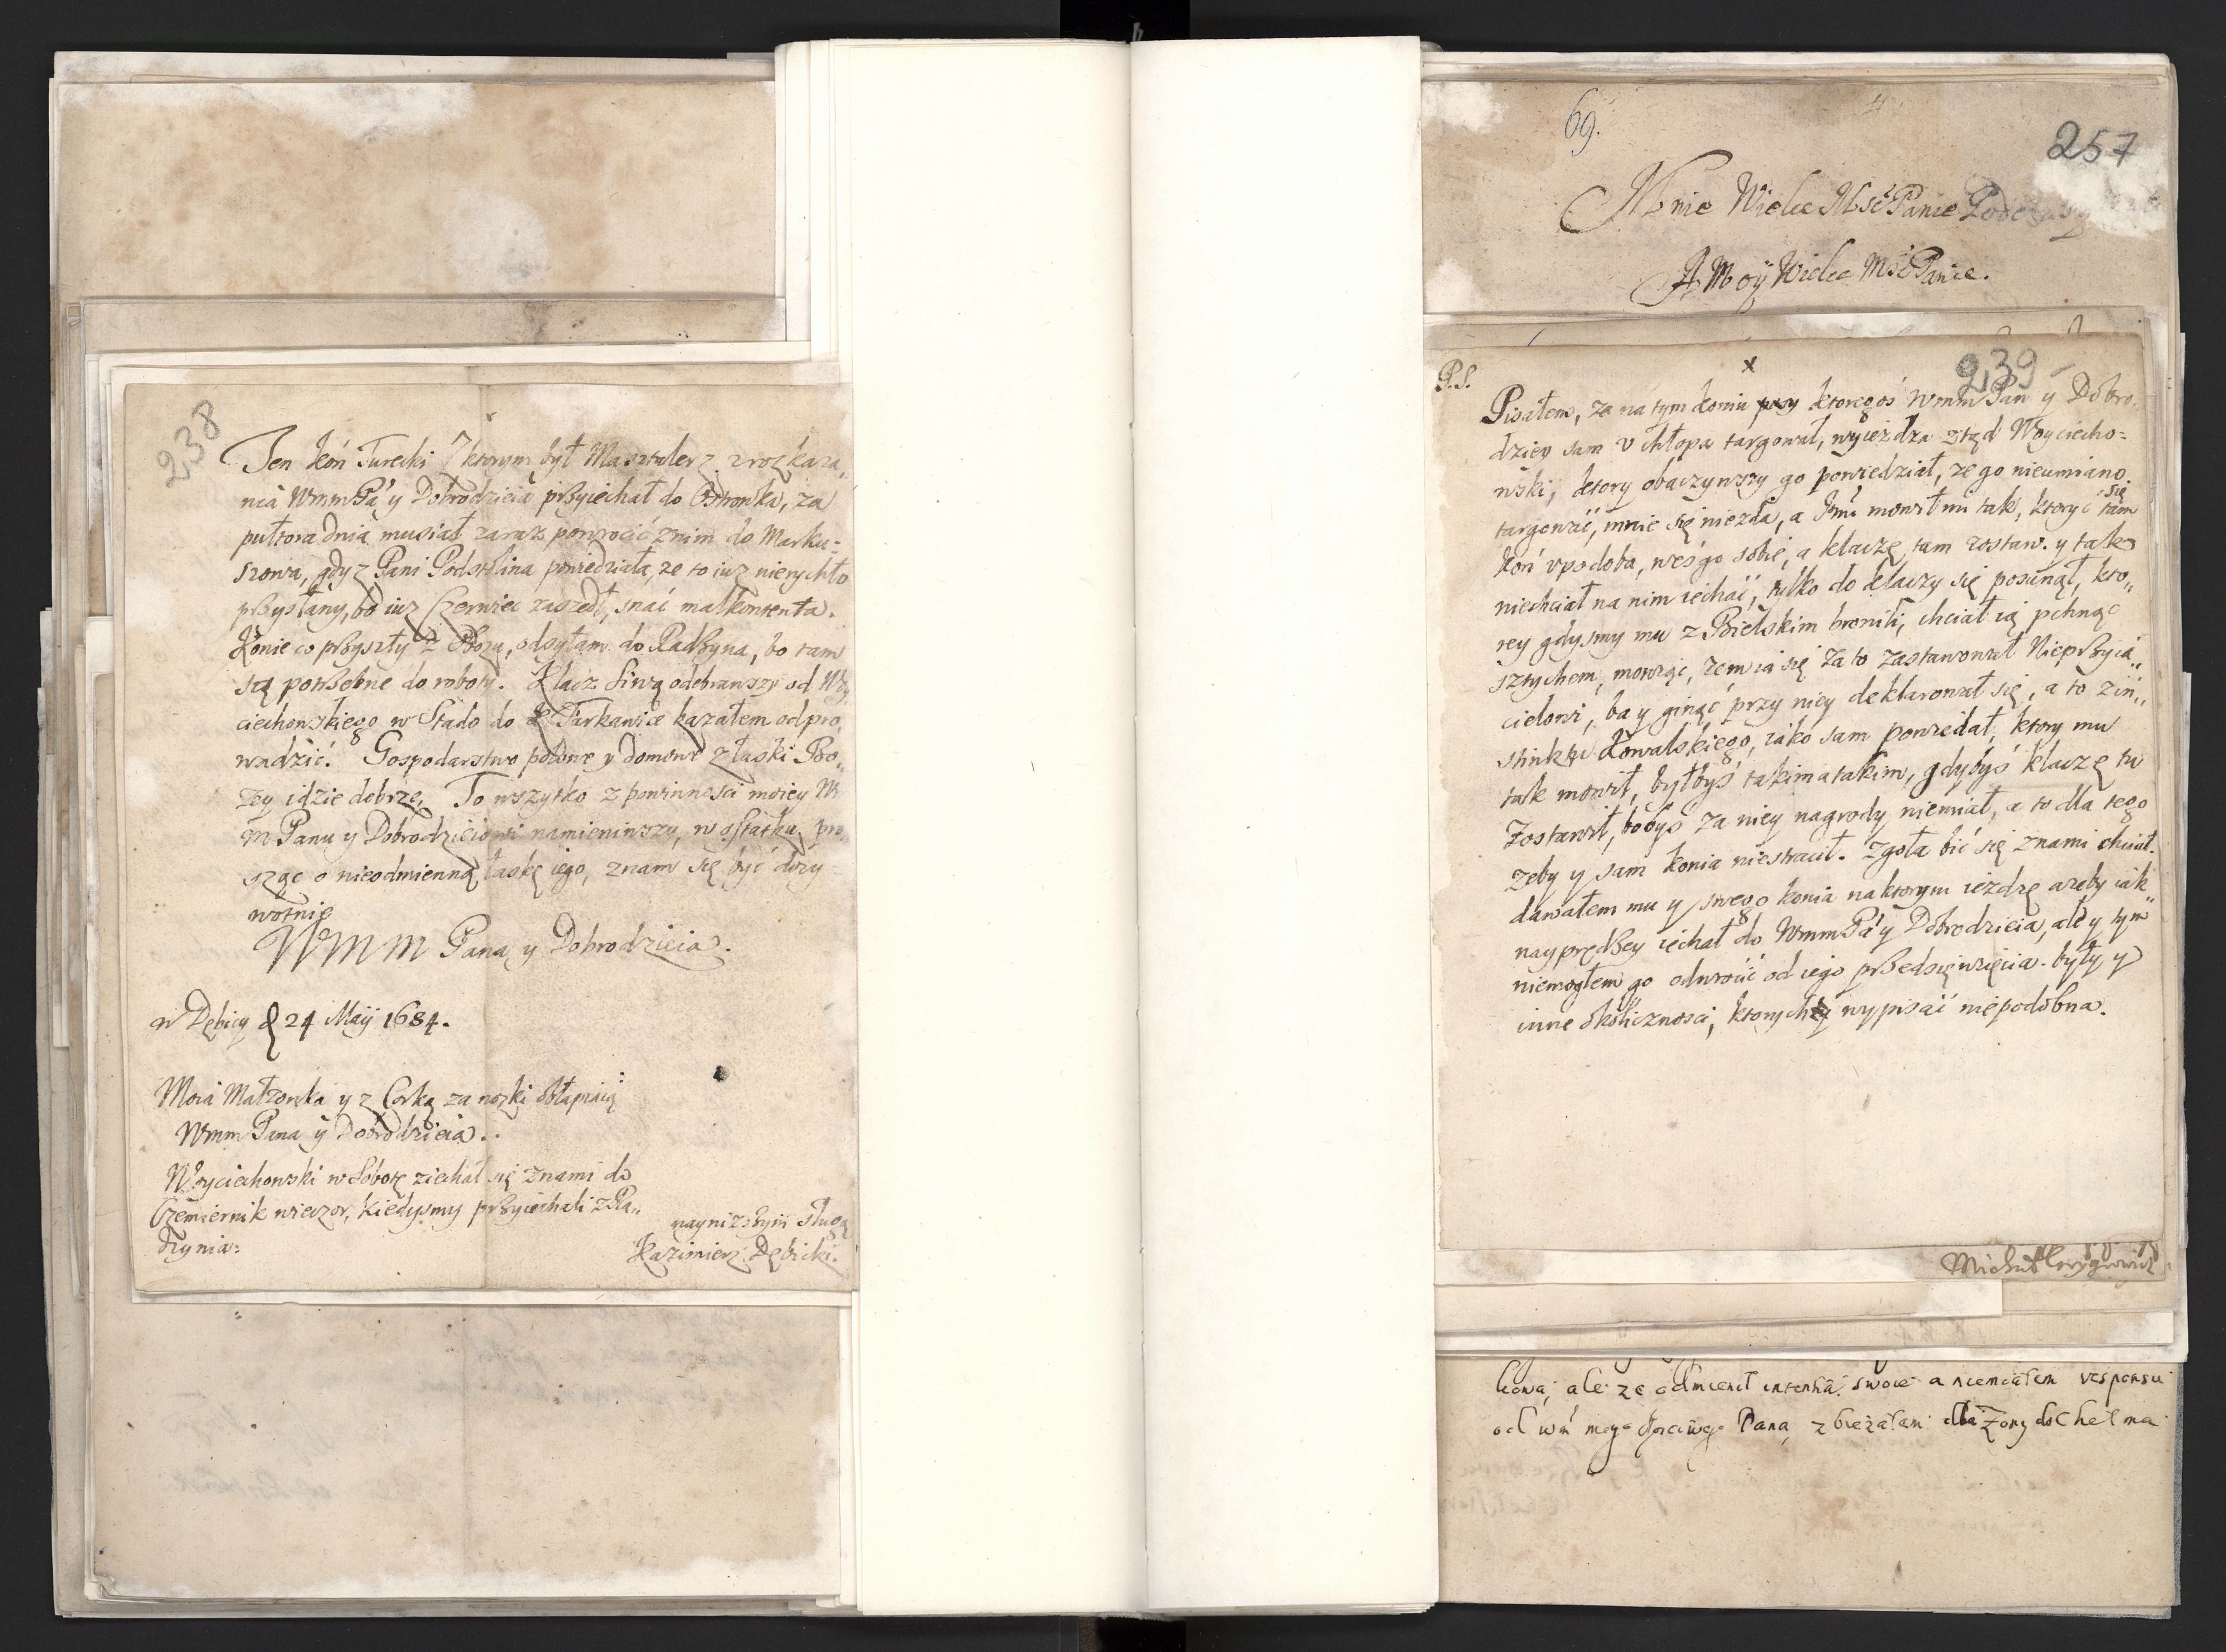 238
Ten koń Turecki z ktorym był Masztalerz z rozkaza„
nia WmmPa y Dobrodzieia przyiechał do Ostrowka, za
pułtora dnia musiał zaraz powrocić znim do Marku=
szowa, gdyz Pani Podstolina powiedziała, ze to iuz nierychło
przysłany, bo iuz Czerwiec zaszedł, snać malkontenta.
Konie co przyszły z Obozu, odsyłam do Radzynia, bo tam
są potrzebne do roboty. Klacz siwą odebrawszy od Woy
ciechowskiego w Stado do Tarkawice kazałem odpro„
wadzić. Gospodarstwo polowe y domowe złaski Bo„
zey idzie dobrze, To wszytko z powinnosci moiey W
m Panu y Dobrodzieiowi namieniwszy, w ostatku pro„
sząc o nieodmienną łaskę iego, znam się być dozy=
wotnie
WMM Pana y Dobrodzieia.
w Dębicy d 24 Maij 1684.
Moia Małzonka y z Corką za nozki obłapiaią
Wmm Pana y Dobrodzieia.
Woyciechowski w Sobotę ziechał się znami do
Czemiernik wieczor, kiedysmy przyiechali z Ra„
dzynia:
naynizszyii sługa
Kazimierz Dębicki.
69.
257
Mnie Wielce Mść Panie Podczaszy
A Moy Wielce Mść Panie.
239
P.S.
x
Pisałem, ze na tym koniu ktoregoś Wmm Pan y Dobro„
dziey sam v chłopa targował, wyiezdza ztąd Woyciecho=
wski, ktory obaczywszy go powiedział, ze go nieumiano
targować, mnie się niezda, a Jmć mowił mi tak, ktoryć się tam
koń vpodoba, weś go sobie, a klaczę tam zostaw. y tak
niechciał na nim iechać, tylko do klaczy się posunął, kto„
rey gdysmy mu z Bielskim bronili, chciał ią pchnąć
sztychem, mowiąc, zem ia się za to zastawował Nieprzyia„
cielowi, ba y ginąć przy niey deklarował się, a to zin„
stinktu Kowalskiego, iako sam powiedał, ktory mu
tak mowił, byłbyś takim a takim, gdybyś klaczę tu
zostawił, bobyś za niey nagrody niemiał, a to dla tego
zeby y sam konia niestracił. Zgoła bić się znami chciał.
dawałem mu y swego konia na ktorym iezdzę azeby iak
nayprędzey iechał do WmmPa y Dobrodzieia, ale y tym
niemogłem go odwroćić od iego przedsięwzięcia. były y
inne okolicznosci, ktorych wypisać niepodobna.
ale ze odmienił swoie a niemiałem responsu
od Pana, zbiezałem dla Zony do Chełma